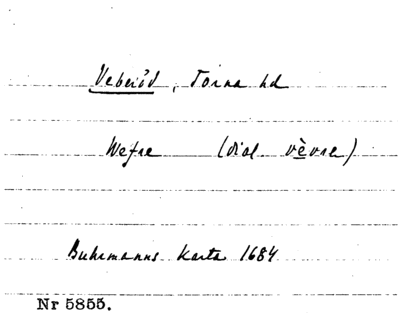 Veberöd, Torna hd
Wefre (dial vèvre)
Buhrmanns Karta 1684
Nr 5855.